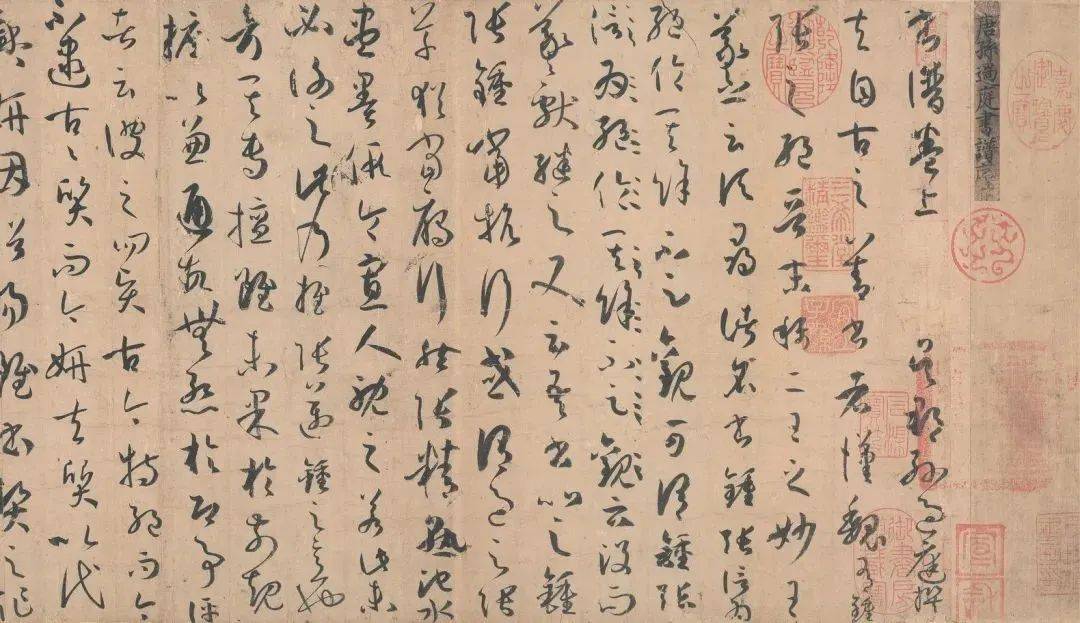 唐孫過庭書譜序
書譜卷上 吳郡孫過庭撰
夫自古之善書者漢魏有鍾
張之絕晉末稱二王之妙王
羲之云頃尋諸名書鍾張信為
絕倫其餘不足觀可謂鍾張
信為絕倫其餘不足觀云沒而
羲獻繼之又云吾書比之鍾
張鍾當抗行或謂過之張
草猶當鴈行然張精熟池水
盡墨假令寡人耽之若此未
必謝之此乃推張邁鍾之意也
考其專擅雖未果於前規
摭以兼通故無慚於即事評
者云彼之四賢古今特絕而今
不逮古々質而今妍夫質以代
興妍因俗易雖書契之作
嘉慶御覽之寶
乾隆御覽之寶
三希堂精鑑璽
宜子孫